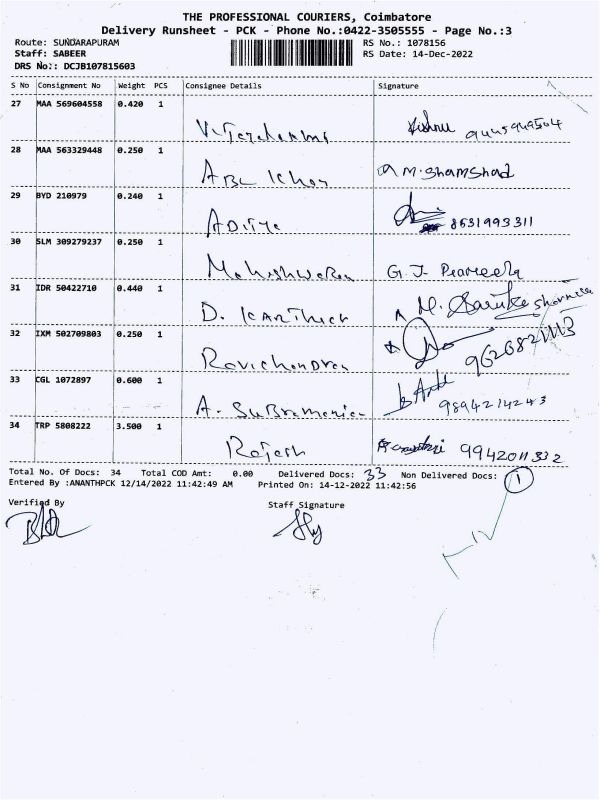 THE PROFESSIONAL COURIERS, Coimbatore
Delivery Runsheet - PCK - Phone No.:0422-3505555 - Page No.:3
Route: SUNDARAPURAM
Staff: SABEER
DRS No.: DCJB107815603
RS No.: 1078156
RS Date: 14-Dec-2022
S No Consignment No Weight PCS Consignee Details Signature
27 MAA 569604558 0.420 1
28 MAA 563329448 0.250 1
A M. Shamshad
29 BYD 210979 0.240 1
ADITYA 8531993311
30 SLM 309279237 0.250 1
Maheshwaran G. J. Prameela
31 IDR 50422710 0.440 1
D. KARTHICK
32 IXM 502709803 0.250 1
Ravichandran
33 CGL 1072897 0.600 1
A. SuBramanian 9894214243
34 TRP 5808222 3.500 1
Rajesh 9942011332
Total No. Of Docs: 34 Total COD Amt: 0.00 Delivered Docs: 33 Non Delivered Docs: 1
Entered By :ANANTHPCK 12/14/2022 11:42:49 AM Printed On: 14-12-2022 11:42:56
Verified By Staff Signature